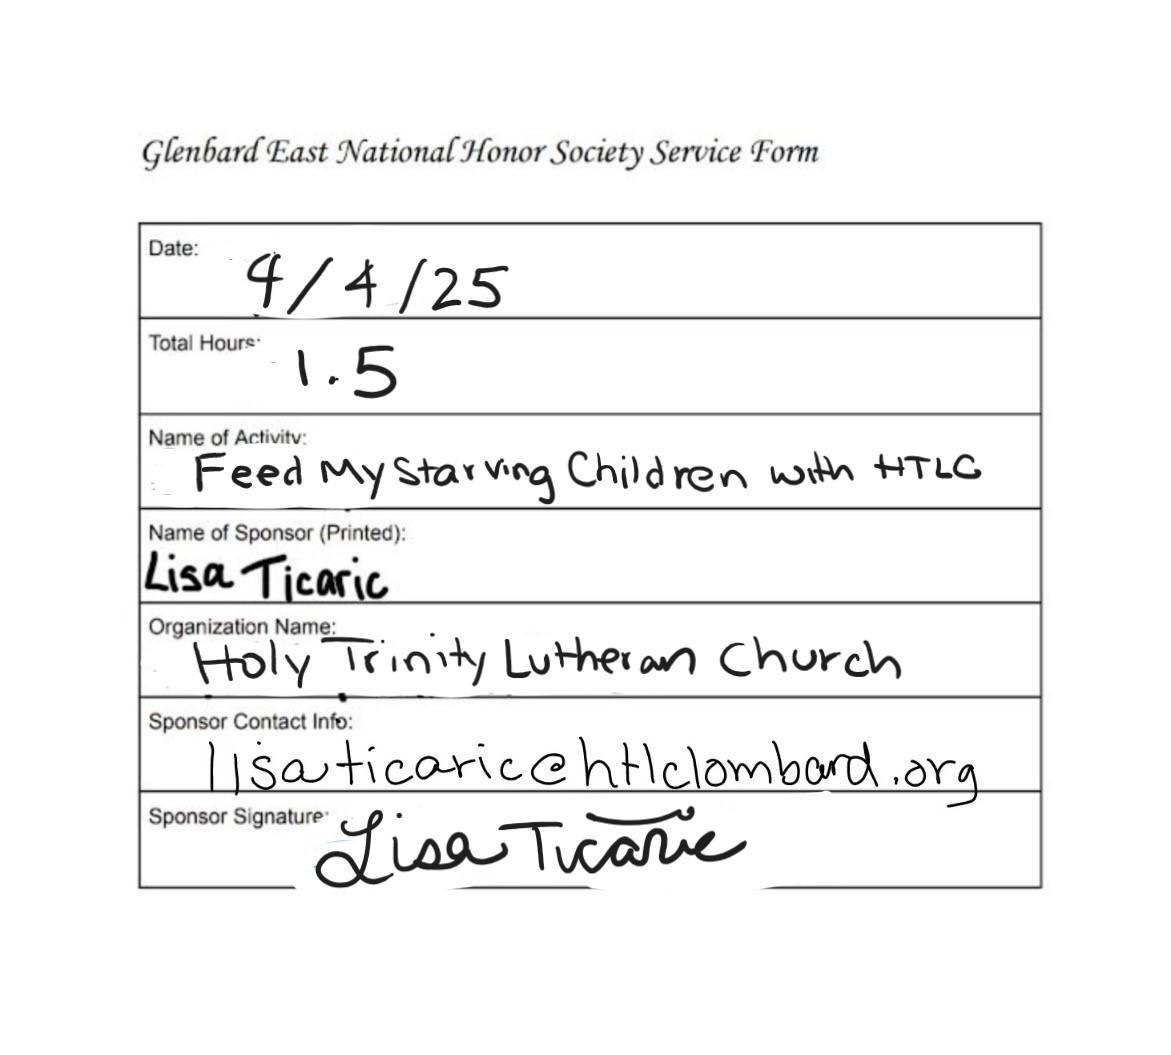 Glenbard East National Honor Society Service Form
Date:
4/4/25
Total Hours:
1.5
Name of Activity:
Feed My Starving Children with HTLC
Name of Sponsor (Printed):
Lisa Ticaric
Organization Name:
Holy Trinity Lutheran Church
Sponsor Contact Info:
lisaticaric@htlclombard.org
Sponsor Signature:
Lisa Ticaric